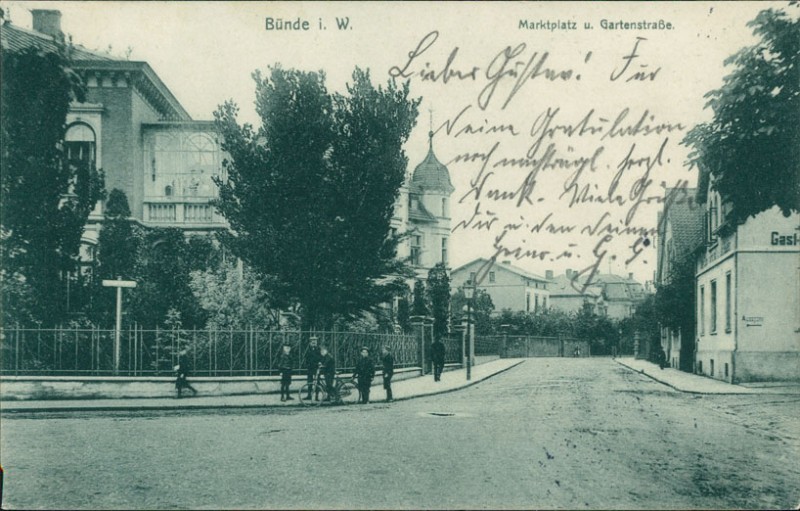 Bünde i. W.
Marktplatz u. Gartenstraße.
Lieber Gustav! Für
Deine Gratulation
noch nachträgl. herzl.
Dank. Viele Grüße
Dir u. den Deinen
Heinr. u. G. G.
Gast